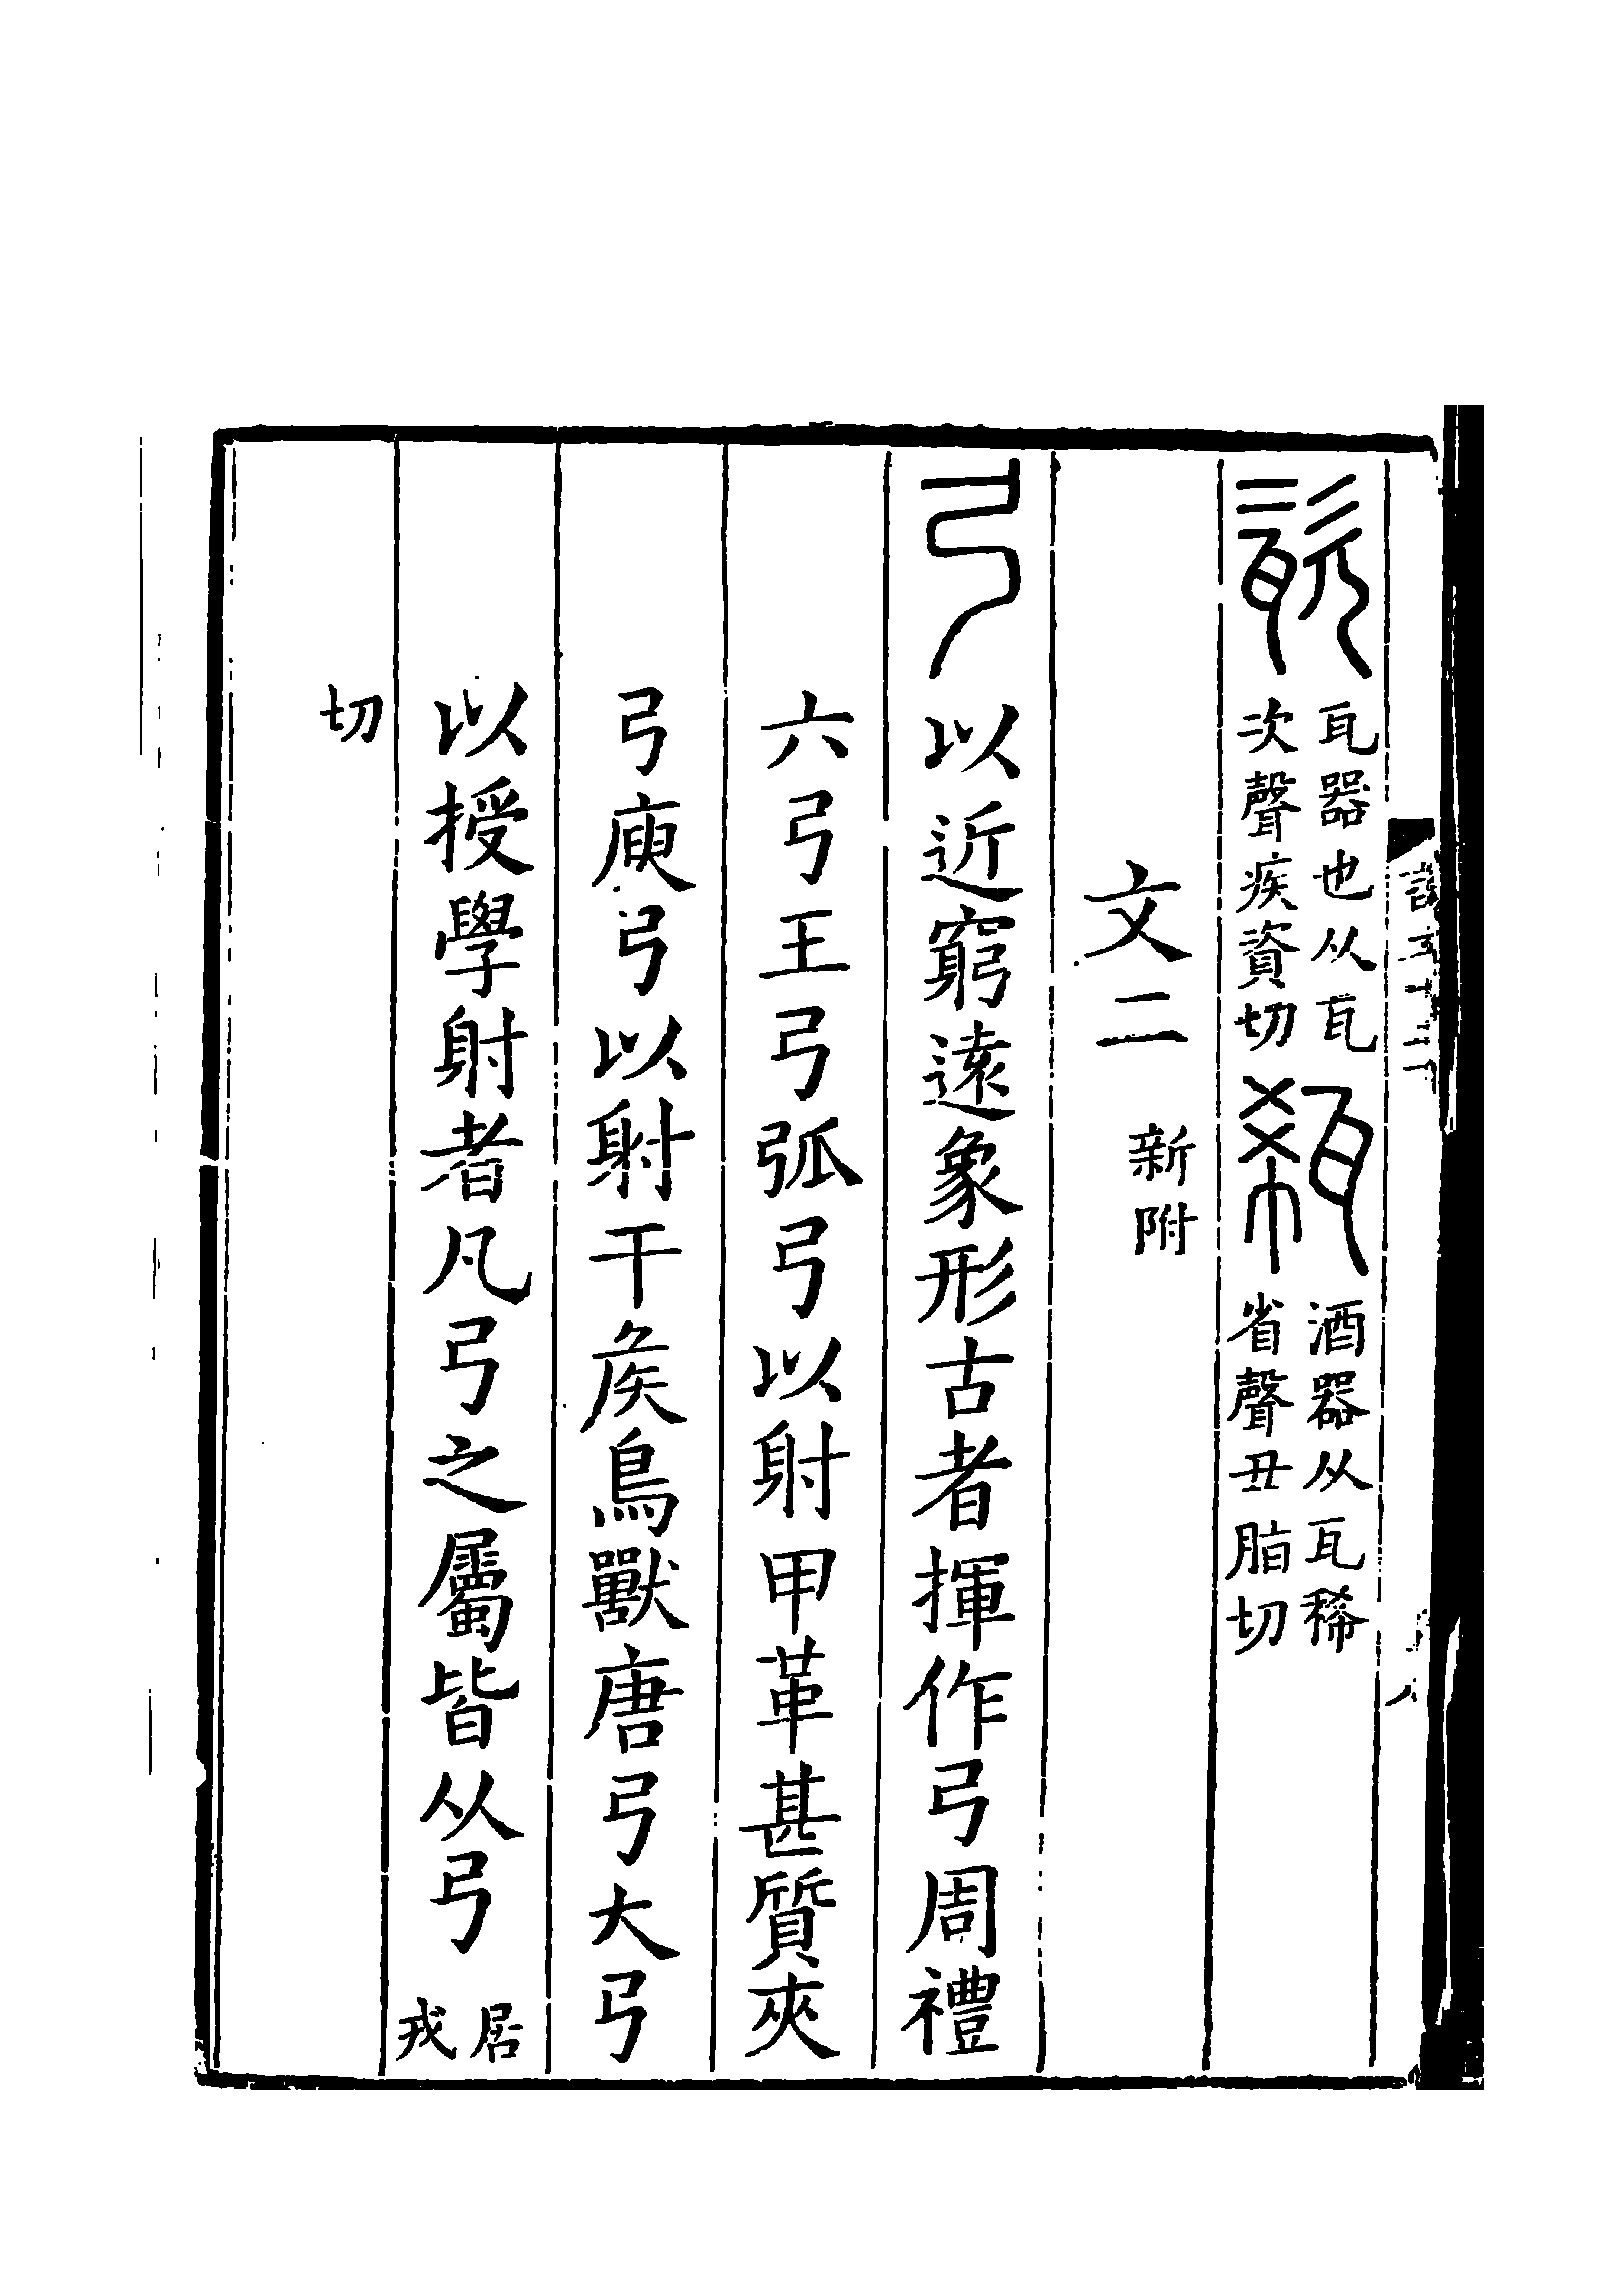 瓷瓦器也从瓦次聲疾資切瓻酒器从瓦稀省聲丑脂切
文二新附
弓以近窮遠象形古者揮作弓周禮
六弓王弓弧弓以射甲革甚質夾
弓庾弓以射干矦鳥獸唐弓大弓
以授學射者凡弓之屬皆从弓居戎
切